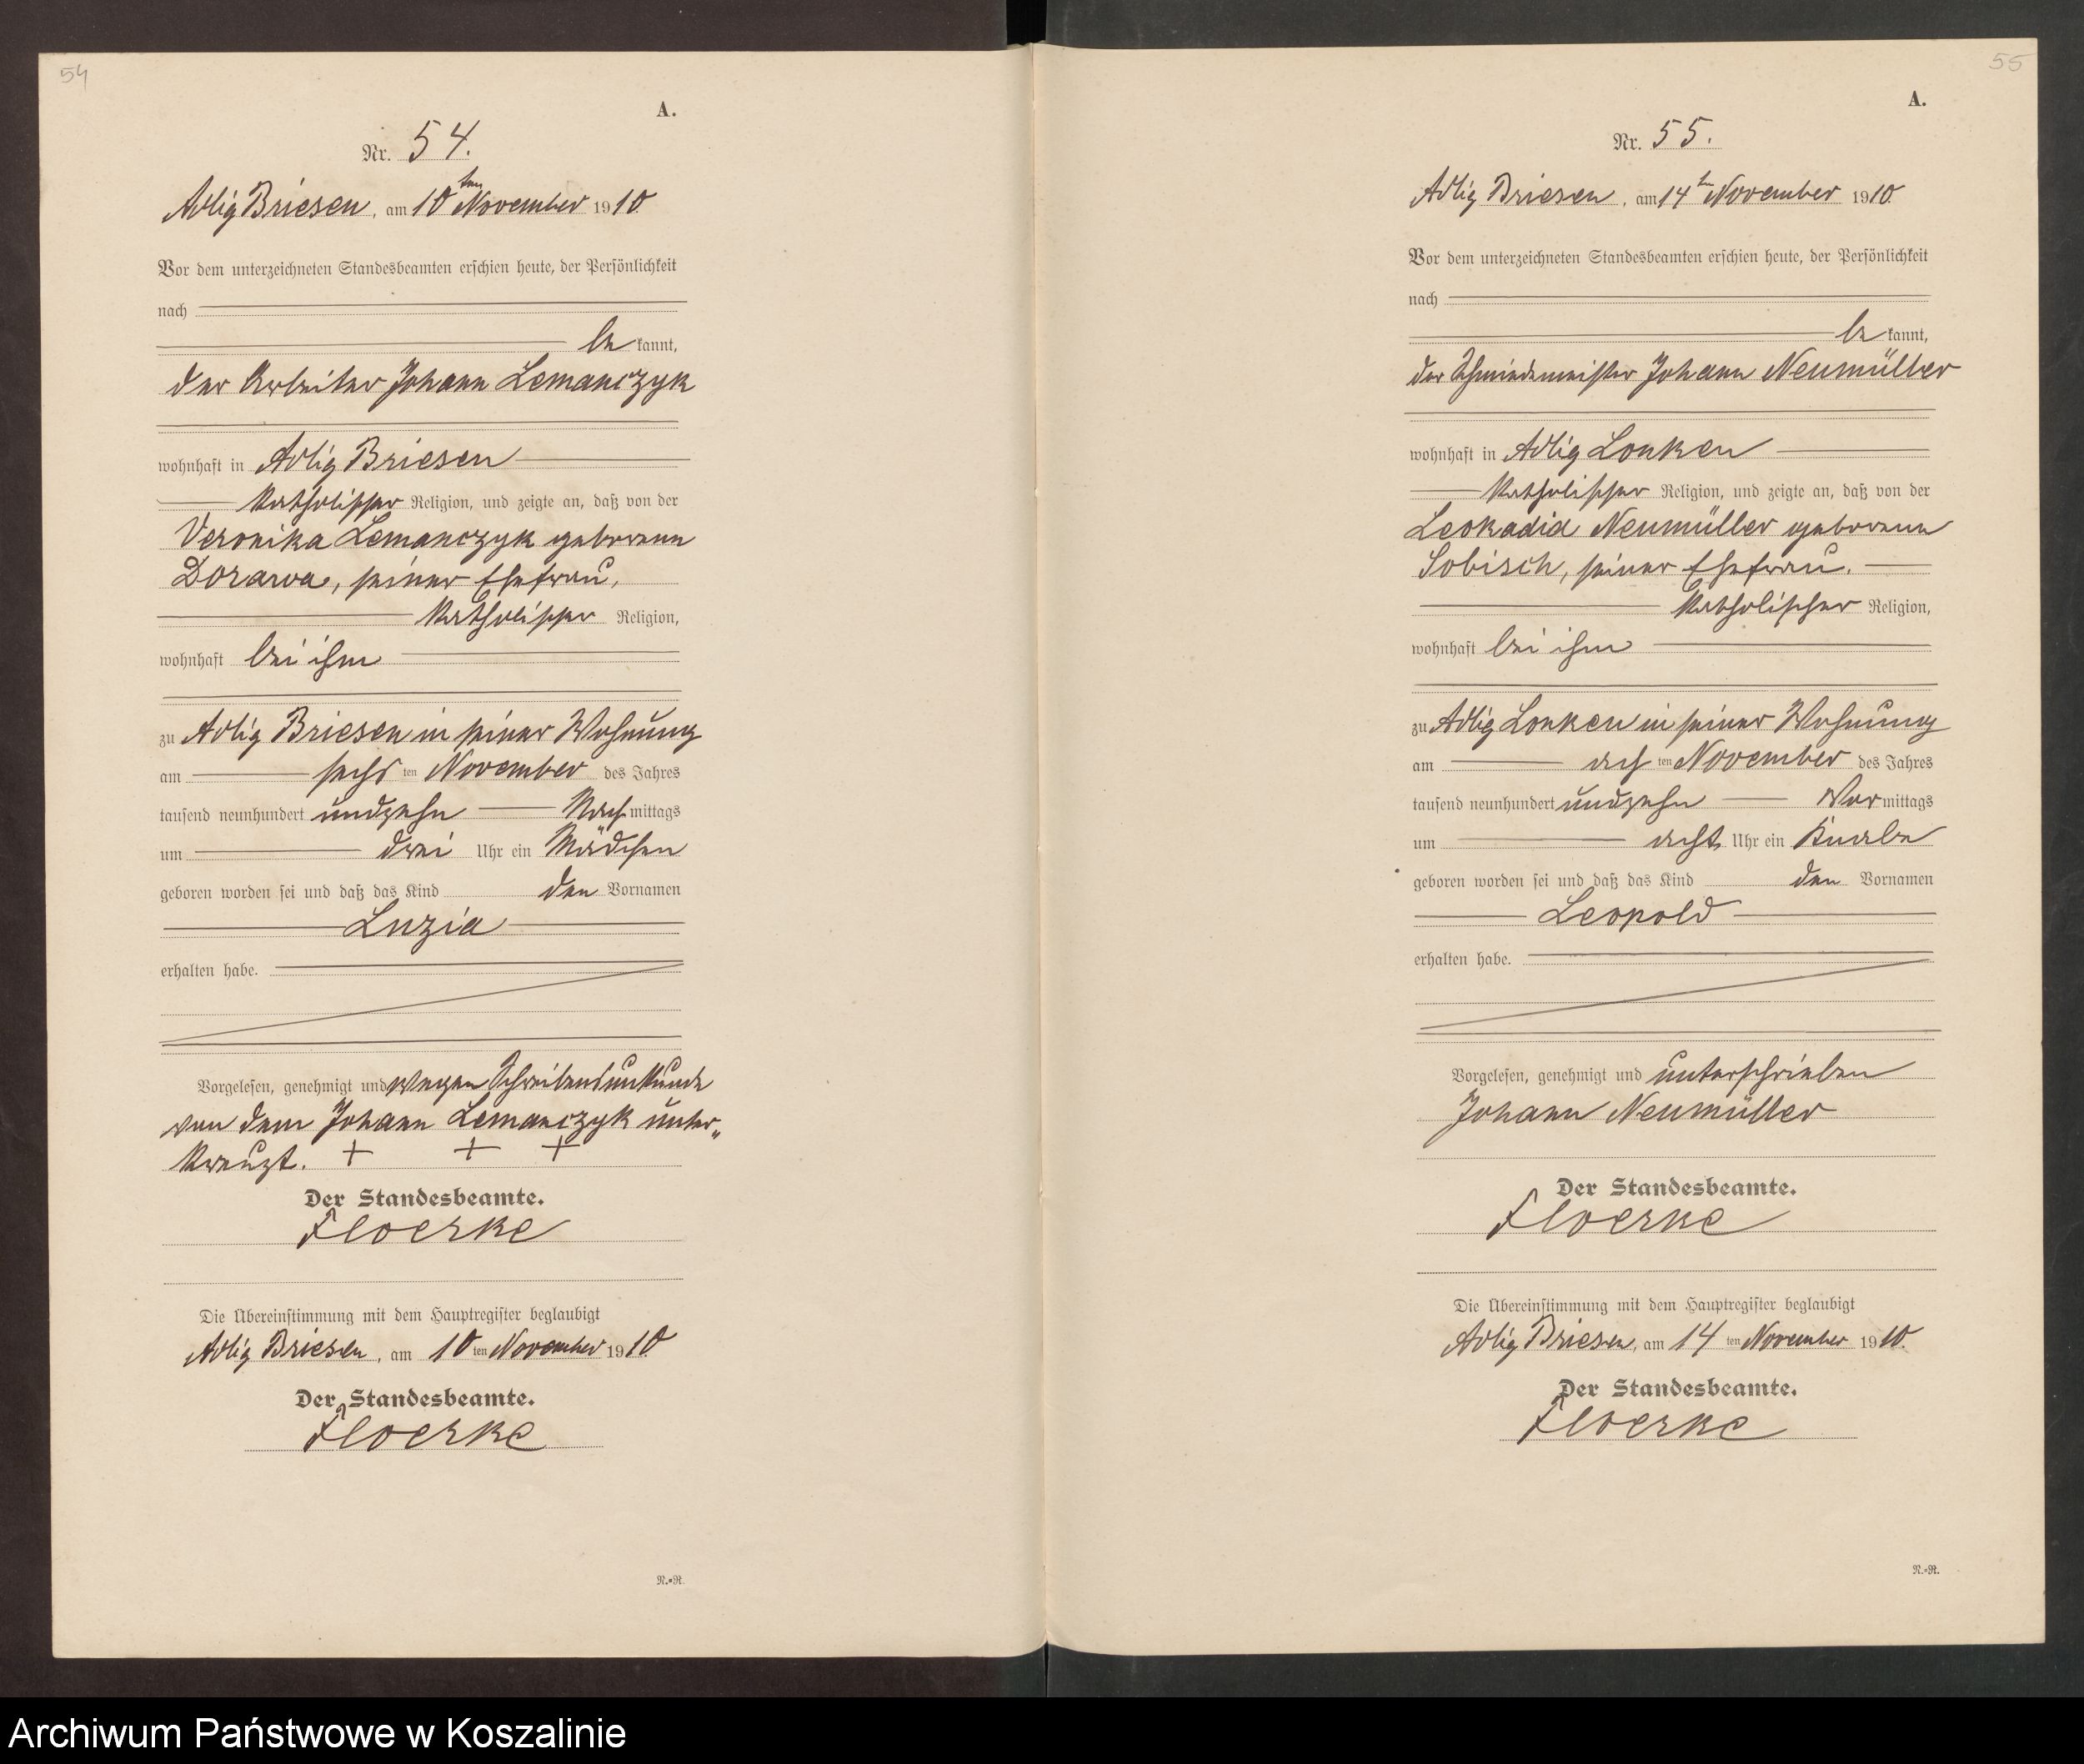 54
A.
Nr. 54.
Adlig Briesen, am 10ten November 1910
Vor dem unterzeichneten Standesbeamten erschien heute, der Persönlichkeit
nach
be kannt,
der Arbeiter Johann Lemanczyk
wohnhaft in Adlig Briesen
katholischer Religion, und zeigte an, daß von der
Veronika Lemanczyk geborenen
Dorawa, seiner Ehefrau,
katholischer Religion,
wohnhaft bei ihm
zu Adlig Briesen in seiner Wohnung
am sechs ten November des Jahres
tausend neunhundert undzehn Nach mittags
um drei Uhr ein Mädchen
geboren worden sei und daß das Kind den Vornamen
Luzia
erhalten habe.
Vorgelesen, genehmigt und wegen Schreibensunkunde
von dem Johann Lemanczyk unter„
kreuzt. + + +
Der Standesbeamte.
Floerke
Die Übereinstimmung mit dem Hauptregister beglaubigt
Adlig Briesen, am 10 ten November 1910.
Der Standesbeamte.
Floerke
N.=R.
55
A.
Nr. 55.
Adlig Briesen, am 14ten November 1910.
Vor dem unterzeichneten Standesbeamten erschien heute, der Persönlichkeit
nach
be kannt,
der Schmiedemeister Johann Neumüller
wohnhaft in Adlig Lonken
katholischer Religion, und zeigte an, daß von der
Leokadia Neumüller geborenen
Sobisch, seiner Ehefrau.
katholischer Religion,
wohnhaft bei ihm
zu Adlig Lonken in seiner Wohnung
am ach ten November des Jahres
tausend neunhundert undzehn Vor mittags
um acht Uhr ein Knabe
geboren worden sei und daß das Kind den Vornamen
Leopold
erhalten habe.
Vorgelesen, genehmigt und unterschrieben
Johann Neumüller
Der Standesbeamte.
Floerke
Die Übereinstimmung mit dem Hauptregister beglaubigt
Adlig Briesen, am 14 ten November 1910.
Der Standesbeamte.
Floerke
N.=R.
Archiwum Państwowe w Koszalinie